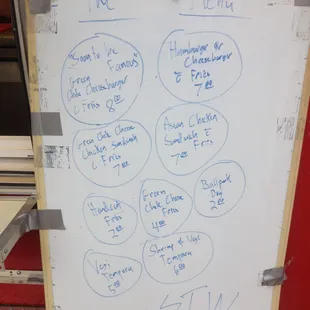 The Menu
"Soon to be
Famous"
Green
Chile Cheeseburger
c̄ Fries
8 00
Hamburger or
Cheeseburger
c̄ Fries
7 00
Green Chile Cheese
Chicken Sandwich
c̄ Fries
7 00
Asian Chicken
Sandwich c̄
Fries
7 00
Handcut
Fries
2 00
Green
Chile Cheese
Fries
4 00
Ballpark
Dog
2 00
Vegi
Tempura
5 00
Shrimp & Vegi
Tempura
6 00